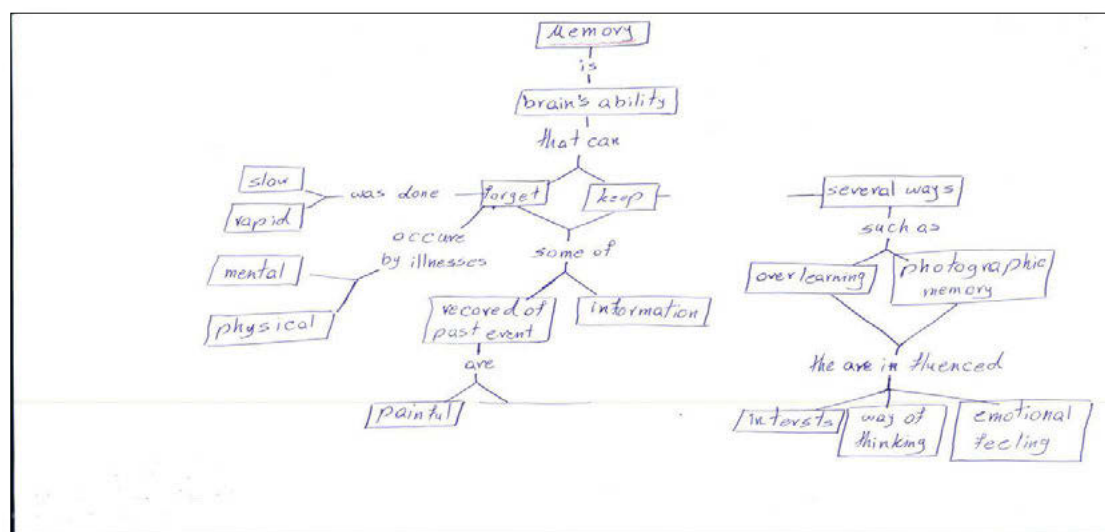 Memory
is
brain's ability
that can
slow
rapid
was done
forget
keep
several ways
occure
by illnesses
mental
physical
some of
such as
recored of
past event
information
over learning
photographic
memory
are
the are in fluenced
painful
intersts
way of
thinking
emotional
feeling